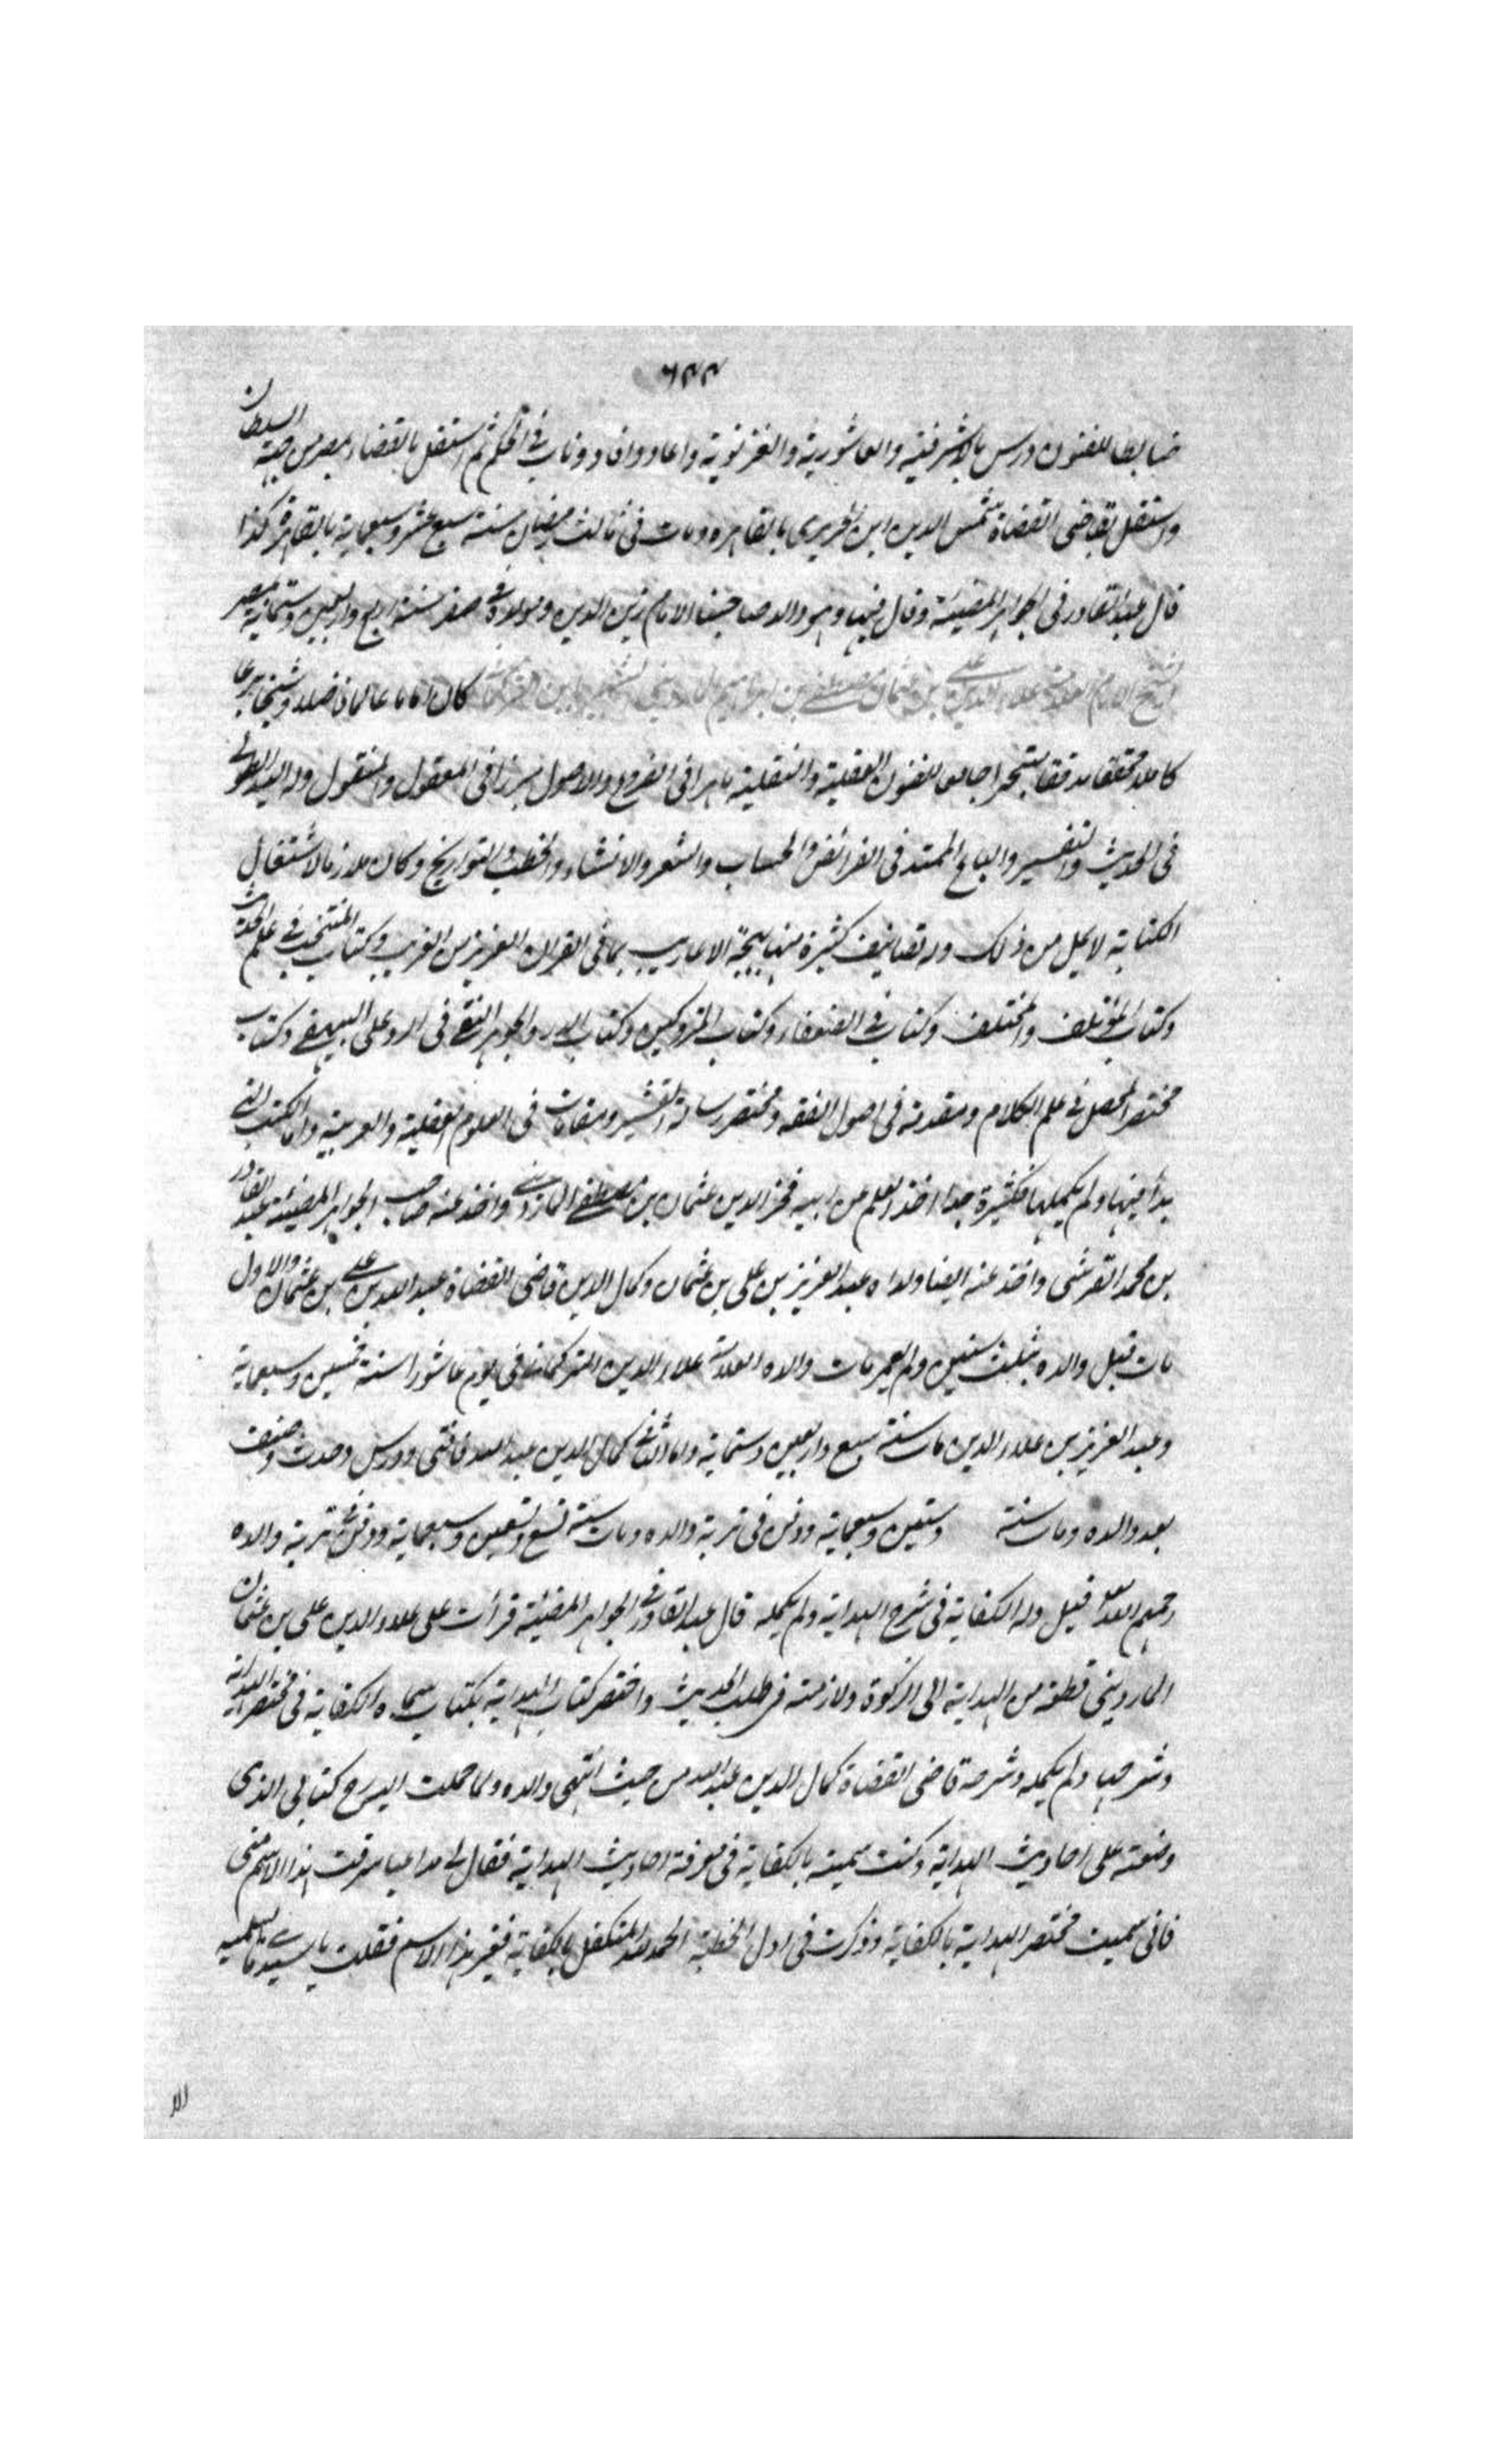 ٦٢٢
ضابطا للفنون درس بالاشرفية والعاشورية والغزنوية واعاد وافاد وناب فى الحكم ثم استقل بالقضاء بمصر من جهة السلطان
واستقل بقاضى القضاة شمس الدين ابن الحريرى بالقاهره ومات فى ثالث رمضان سنة سبع عشر وسبعماية بالقاهرة كذا
قال عبد القادر فى الجواهر المضيئة وقال فيها وهو والد صاحبنا الامام زين الدين ومولده فى صفر سنة اربع واربعين وستماية بمصر
الشيخ الامام العلامة علاء الدين على بن عثمان بن مصطفى بن ابراهيم الماردينى الشهير بابن التركمانى كان اماما عالما فاضلا وشيخا بارعا
كاملا محققا مدققا متبحرا جامعا للفنون العقلية والنقلية ماهرا فى الفروع والاصول مبرزا فى المعقول والمنقول وله اليد الطولى
فى الحديث والتفسير والباع الممتد فى الفرائض والحساب والشعر والانشاء والخطب والتواريخ وكان ملازما لاشتغال
الكتابة لا يمل من ذلك وله تصانيف كثيرة منها بهجة الاعاريب بما فى القران العزيز من الغريب وكتاب المنتخب فى علم الحديث
وكتاب المؤتلف والمختلف وكتاب فى الضعفاء وكتاب المتروكين وكتاب الدر والجوهر النقى فى الرد على البيهقى وكتاب
مختصر المحصل فى علم الكلام ومقدمة فى اصول الفقه ومختصر رسالة القشيرى ومقامات فى العلوم العقلية والعربية واما الكتب التى
بدأ فيها ولم يكملها فكثيرة جدا اخذ العلم عن ابيه فخر الدين عثمان بن مصطفى الماردينى واخذ عنه صاحب الجواهر المضيئة عبد القادر
بن محمد القرشى واخذ عنه ايضا ولداه عبد العزيز بن على بن عثمان وكمال الدين قاضى القضاة عبد الله بن على بن عثمان والاول
مات قبل والده بثلث سنين ولم يعمر مات والده العلامة علاء الدين التركمانى فى يوم عاشورا سنة خمسين وسبعماية
وعبد العزيز بن علاء الدين مات سنة سبع واربعين وستماية واما الثانى كمال الدين عبد الله فافتى ودرس وحدث وصنف
بعد والده ومات سنة وستين وسبعماية ودفن فى تربة والده ومات سنة تسع وتسعين وسبعماية ودفن فى تربة والده
رحمهم الله قيل وله الكفاية فى شرح الهداية ولم يكمله قال عبد القادر فى الجواهر المضيئة قرأت على علاء الدين على بن عثمان
الماردينى قطعة من الهداية الى الزكوة ولازمته فى طلب الحديث واختصر كتاب الهداية بكتاب سماه الكفاية فى مختصر الهداية
وشرحها ولم يكمله وشرحه قاضى القضاة كمال الدين عبد الله من حيث انتهى والده ولما حملت اليه كتابى الذى
وضعته على احاديث الهداية وكنت سميته بالكفاية فى معرفة احاديث الهداية فقال لى مداعبا سرقت هذا الاسم منى
فانى سميت مختصر الهداية بالكفاية وذكرت فى اول الخطبة الحمد لله المتكفل بالكفاية فغير هذا الاسم فقلت يا سيدى ما تسميه
الا